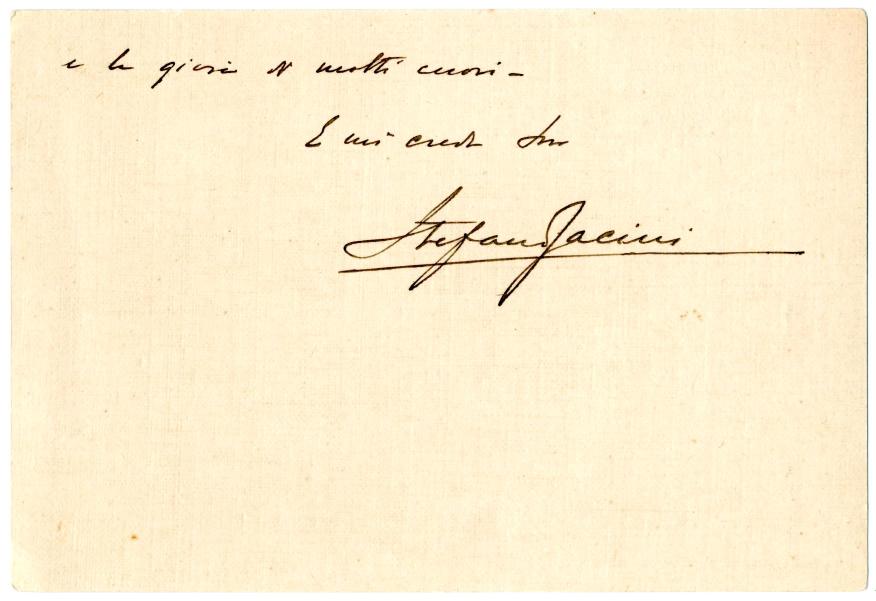 e la gioia di molti cuori -
E mi creda Suo
Stefano Jacini